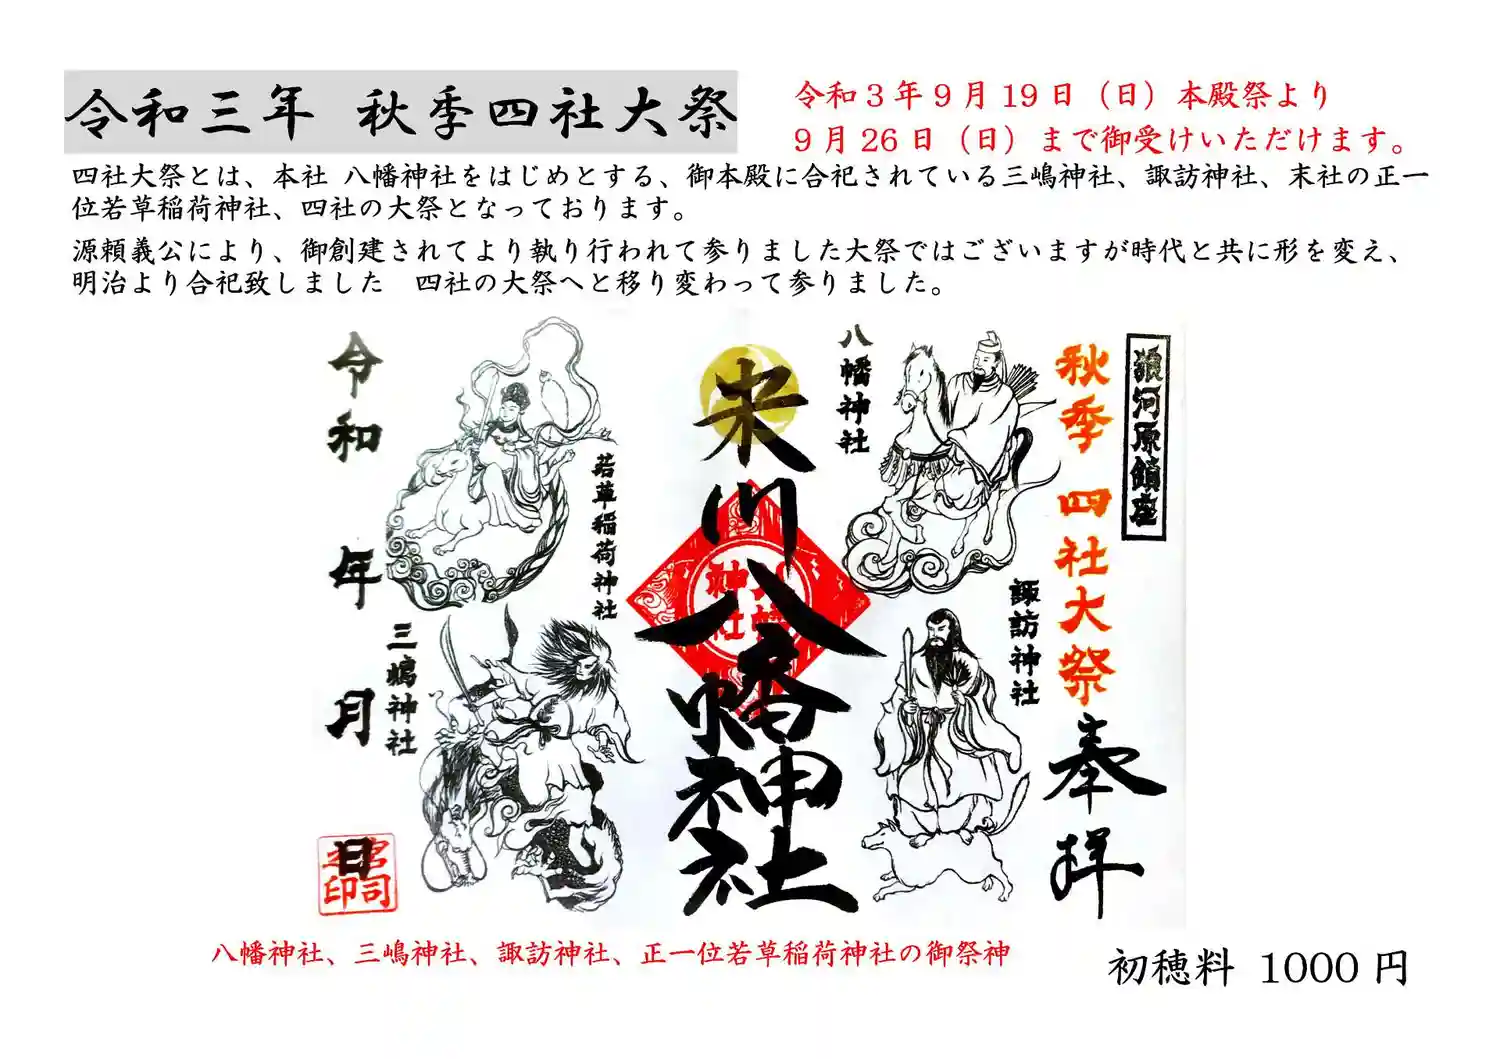 令和三年 秋季四社大祭
令和３年９月19日（日）本殿祭より
９月26日（日）まで御受けいただけます。
四社大祭とは、本社 八幡神社をはじめとする、御本殿に合祀されている三嶋神社、諏訪神社、末社の正一
位若草稲荷神社、四社の大祭となっております。
源頼義公により、御創建されてより執り行われて参りました大祭ではございますが時代と共に形を変え、
明治より合祀致しました　四社の大祭へと移り変わって参りました。
狼河原鎮座
秋季 四社大祭
奉拝
八幡神社
諏訪神社
米川八幡神社
八幡
神社
若草稲荷神社
三嶋神社
令和 年 月 日
宮司
之印
八幡神社、三嶋神社、諏訪神社、正一位若草稲荷神社の御祭神
初穂料 1000 円